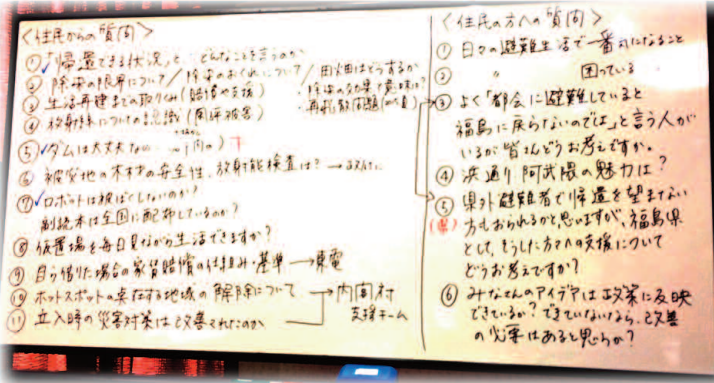 <住民からの質問>
① 「帰還できる状況」と、どんなことを言うのか
② 除染の限界について/除染のおくれについて/田畑はどうするか
③ 生活再建までの取りくみ(賠償や支援)
・除染の効果と意味は?
④ 放射線についての認識(風評被害)
・再拡散問題
⑤ ダムは大丈夫
⑥ 被災地の木材の安全性、放射能検査は?→
⑦ ロボットは被ばくしないのか?
副読本は全国に配布しているのか?
⑧ 仮置場を毎日見ながら生活できますか?
⑨ 自ら借りた場合の家賃賠償の仕組み・基準→東電
⑩ ホットスポットの点在する地域の解除について
→内閣府
支援チーム
⑪ 立入時の災害対策は改善されたのか
<住民の方への質問>
① 日々の避難生活で一番気になること
② 〃 困っている
③ よく「都会に避難していると
福島に戻らないのでは」と言う人が
いるが皆さんどうお考えですか。
④ 浜通り 阿武隈の魅力は?
⑤ 県外避難者で帰還を望まない
(県) 方もおられるかと思いますが、福島県
として、そうした方々への支援について
どうお考えですか?
⑥ みなさんのアイデアは政策に反映
できているか?できていないなら、改善
の必要はあると思うか?